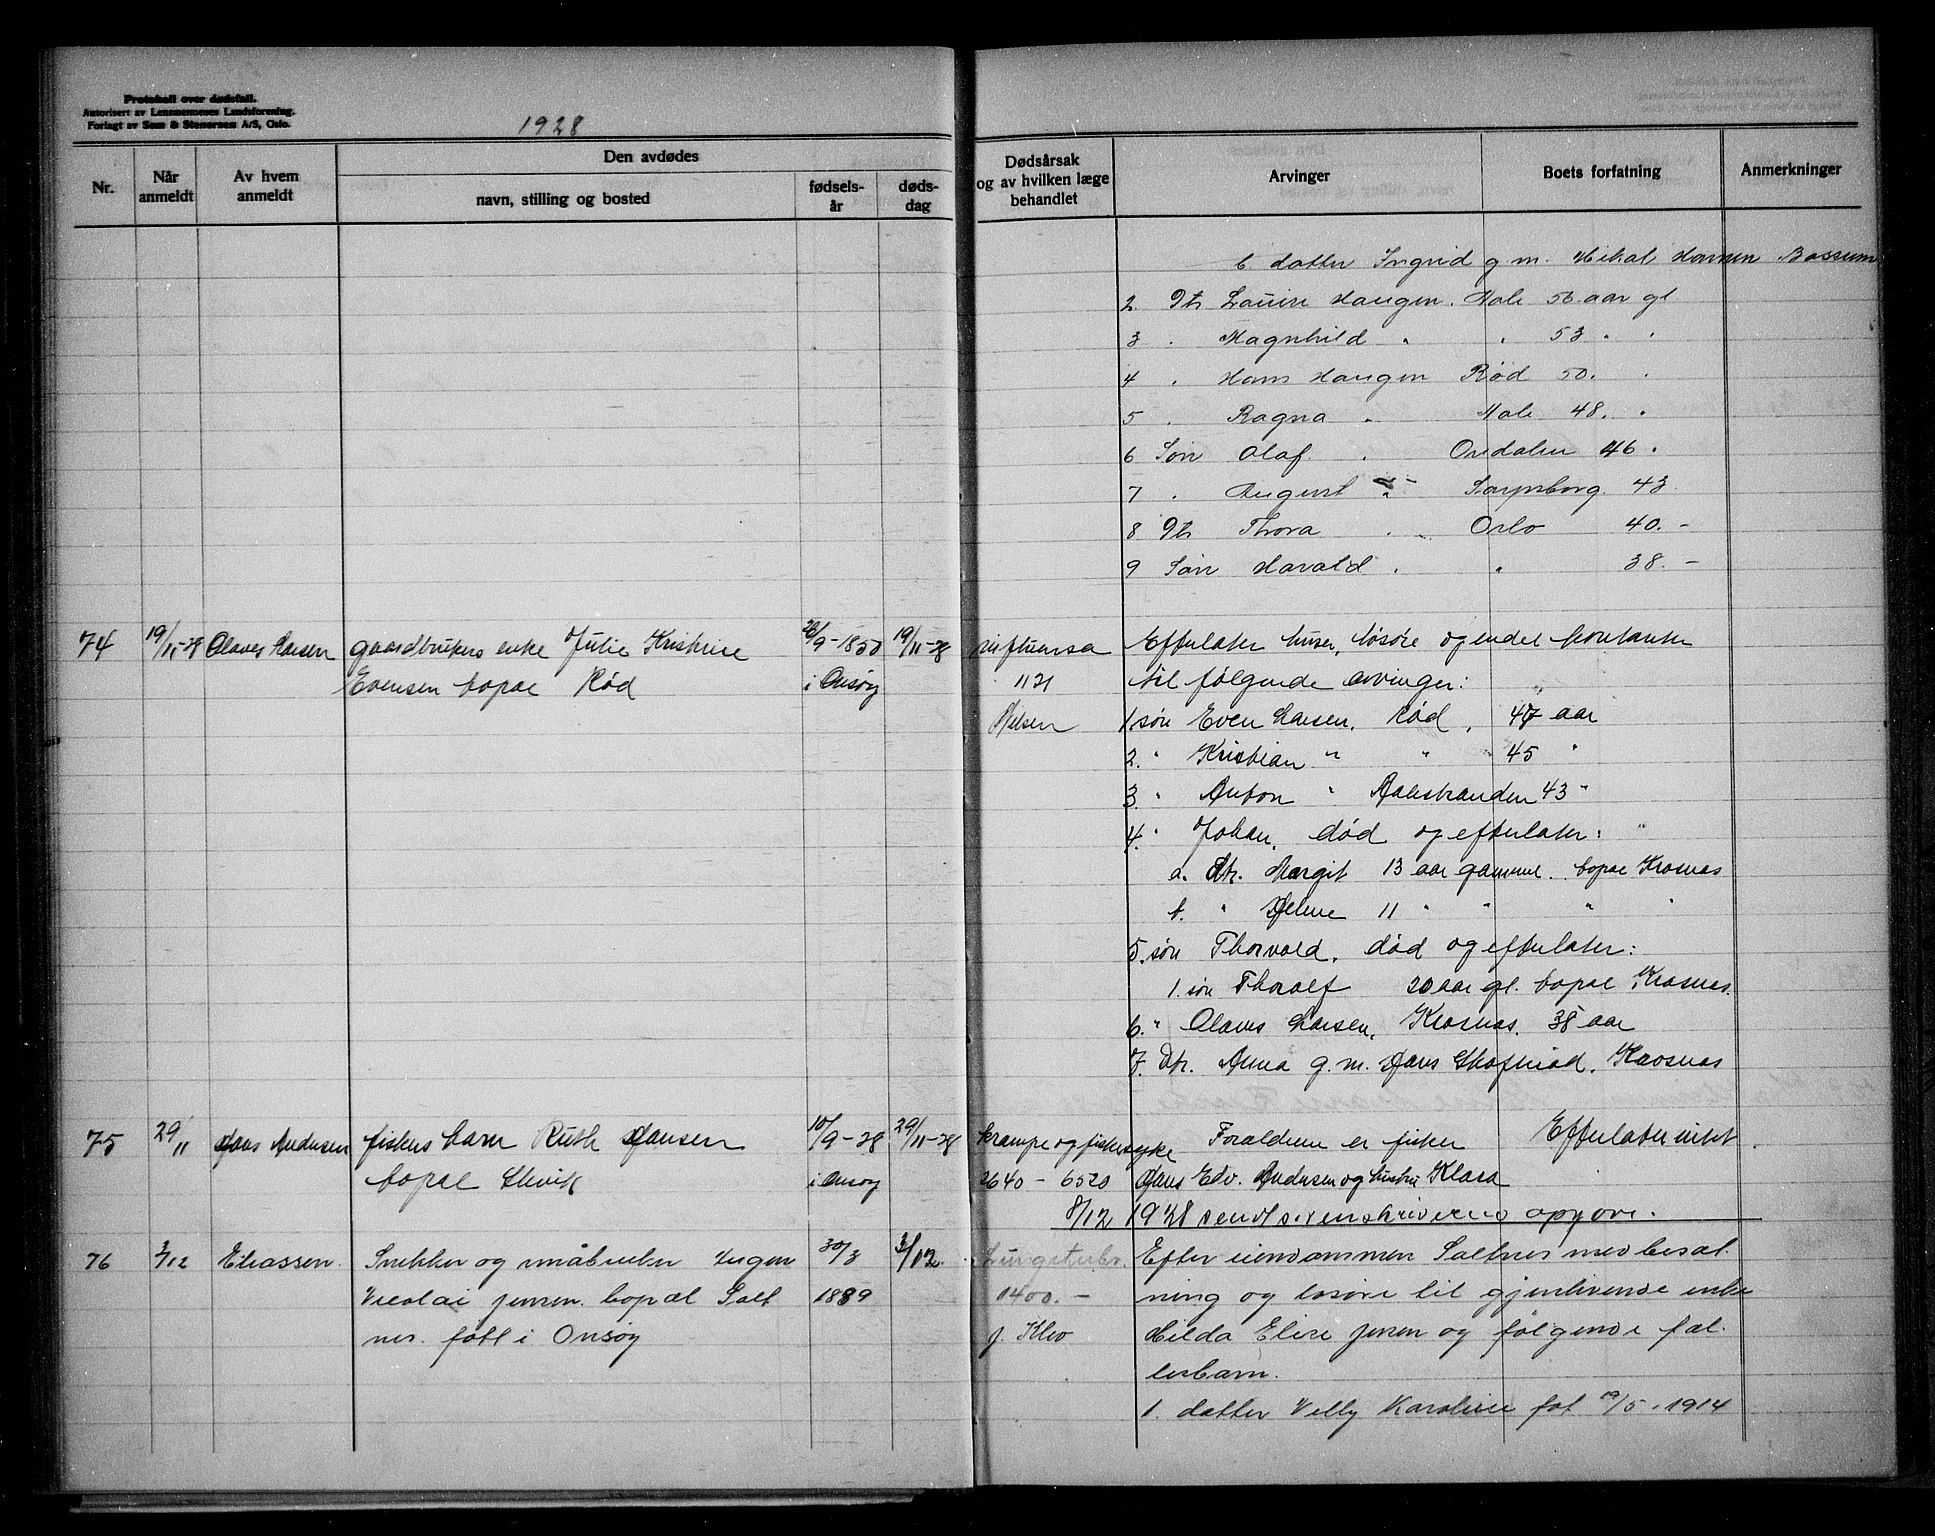 Protokoll over dødsfall.
Autorisert av Lensmennenes Landsforening.
Forlagt av Sem & Stenersen A/S, Oslo.
1928
Nr.
Når anmeldt
Av hvem anmeldt
Den avdødes
navn, stilling og bosted
fødsels-år
døds-dag
Dødsårsak og av hvilken læge behandlet
Arvinger
Boets forfatning
Anmerkninger
b. datter Ingrid g. m. Mikal Hansen Bossum
2. Dtr Louise Haugen. Hale 56 aar gl
3 " Magnhild " " 53 " "
4 " Hans Haugen Rød 50. "
5 " Ragna " Hale 48. "
6 Søn Olaf " Onsdalen 46 "
7 " August " Sarpsborg. 43
8 Dtr Thora " Oslo 40. -
9 Søn Harald " " 38. -
74 19/11-28 Olaves Larsen gaardbrukers enke Julie Kristine 26/9-1850 19/11-28 influensa Efterlater huser, løsøre og endel kontanter
Evensen bopæl Rød i Onsøy 1121 til følgende arvinger:
Nilsen 1. søn Even Larsen, Rød, 47 aar
2. " Kristian " " 45 "
3. " Anton " Aalestranden 43 "
4. " Johan, død og efterlater:
a. Dtr. Margit 13 aar gammel. bopæl Kraknes
b. " Helene 11 " " " "
5. søn Thorvald, død og efterlater:
1. søn Thoralf 20 aar gl. bopæl
6. " Olaves Larsen, 38 aar
7. Dtr. Anna g. m. Hans
75 29/11 Hans Andersen fiskers barn Ruth Hansen 10/9-28 29/11-28 krampe og Foreldrene er fisker Efterlater intet.
bopæl Slevik i Onsøy 2640 - 6520 Hans Edv. Andersen og hustru Klara
8/12 1928 sendt sorenskriverens opgave.
76 3/12 Eliassen. Snekker og småbruker 30/3 3/12. Lungetub. Efter eiendommen Saltnes med besæt
Nicolai Jensen. bopæl Salt 1889 0400. - ning og løsøre til gjenlevende enke
nes. født i Onsøy J. Klev Hilda Elise Jensen og følgende fæl.
lesbarn.
1. datter Velly Karoline føt 19/5. 1914